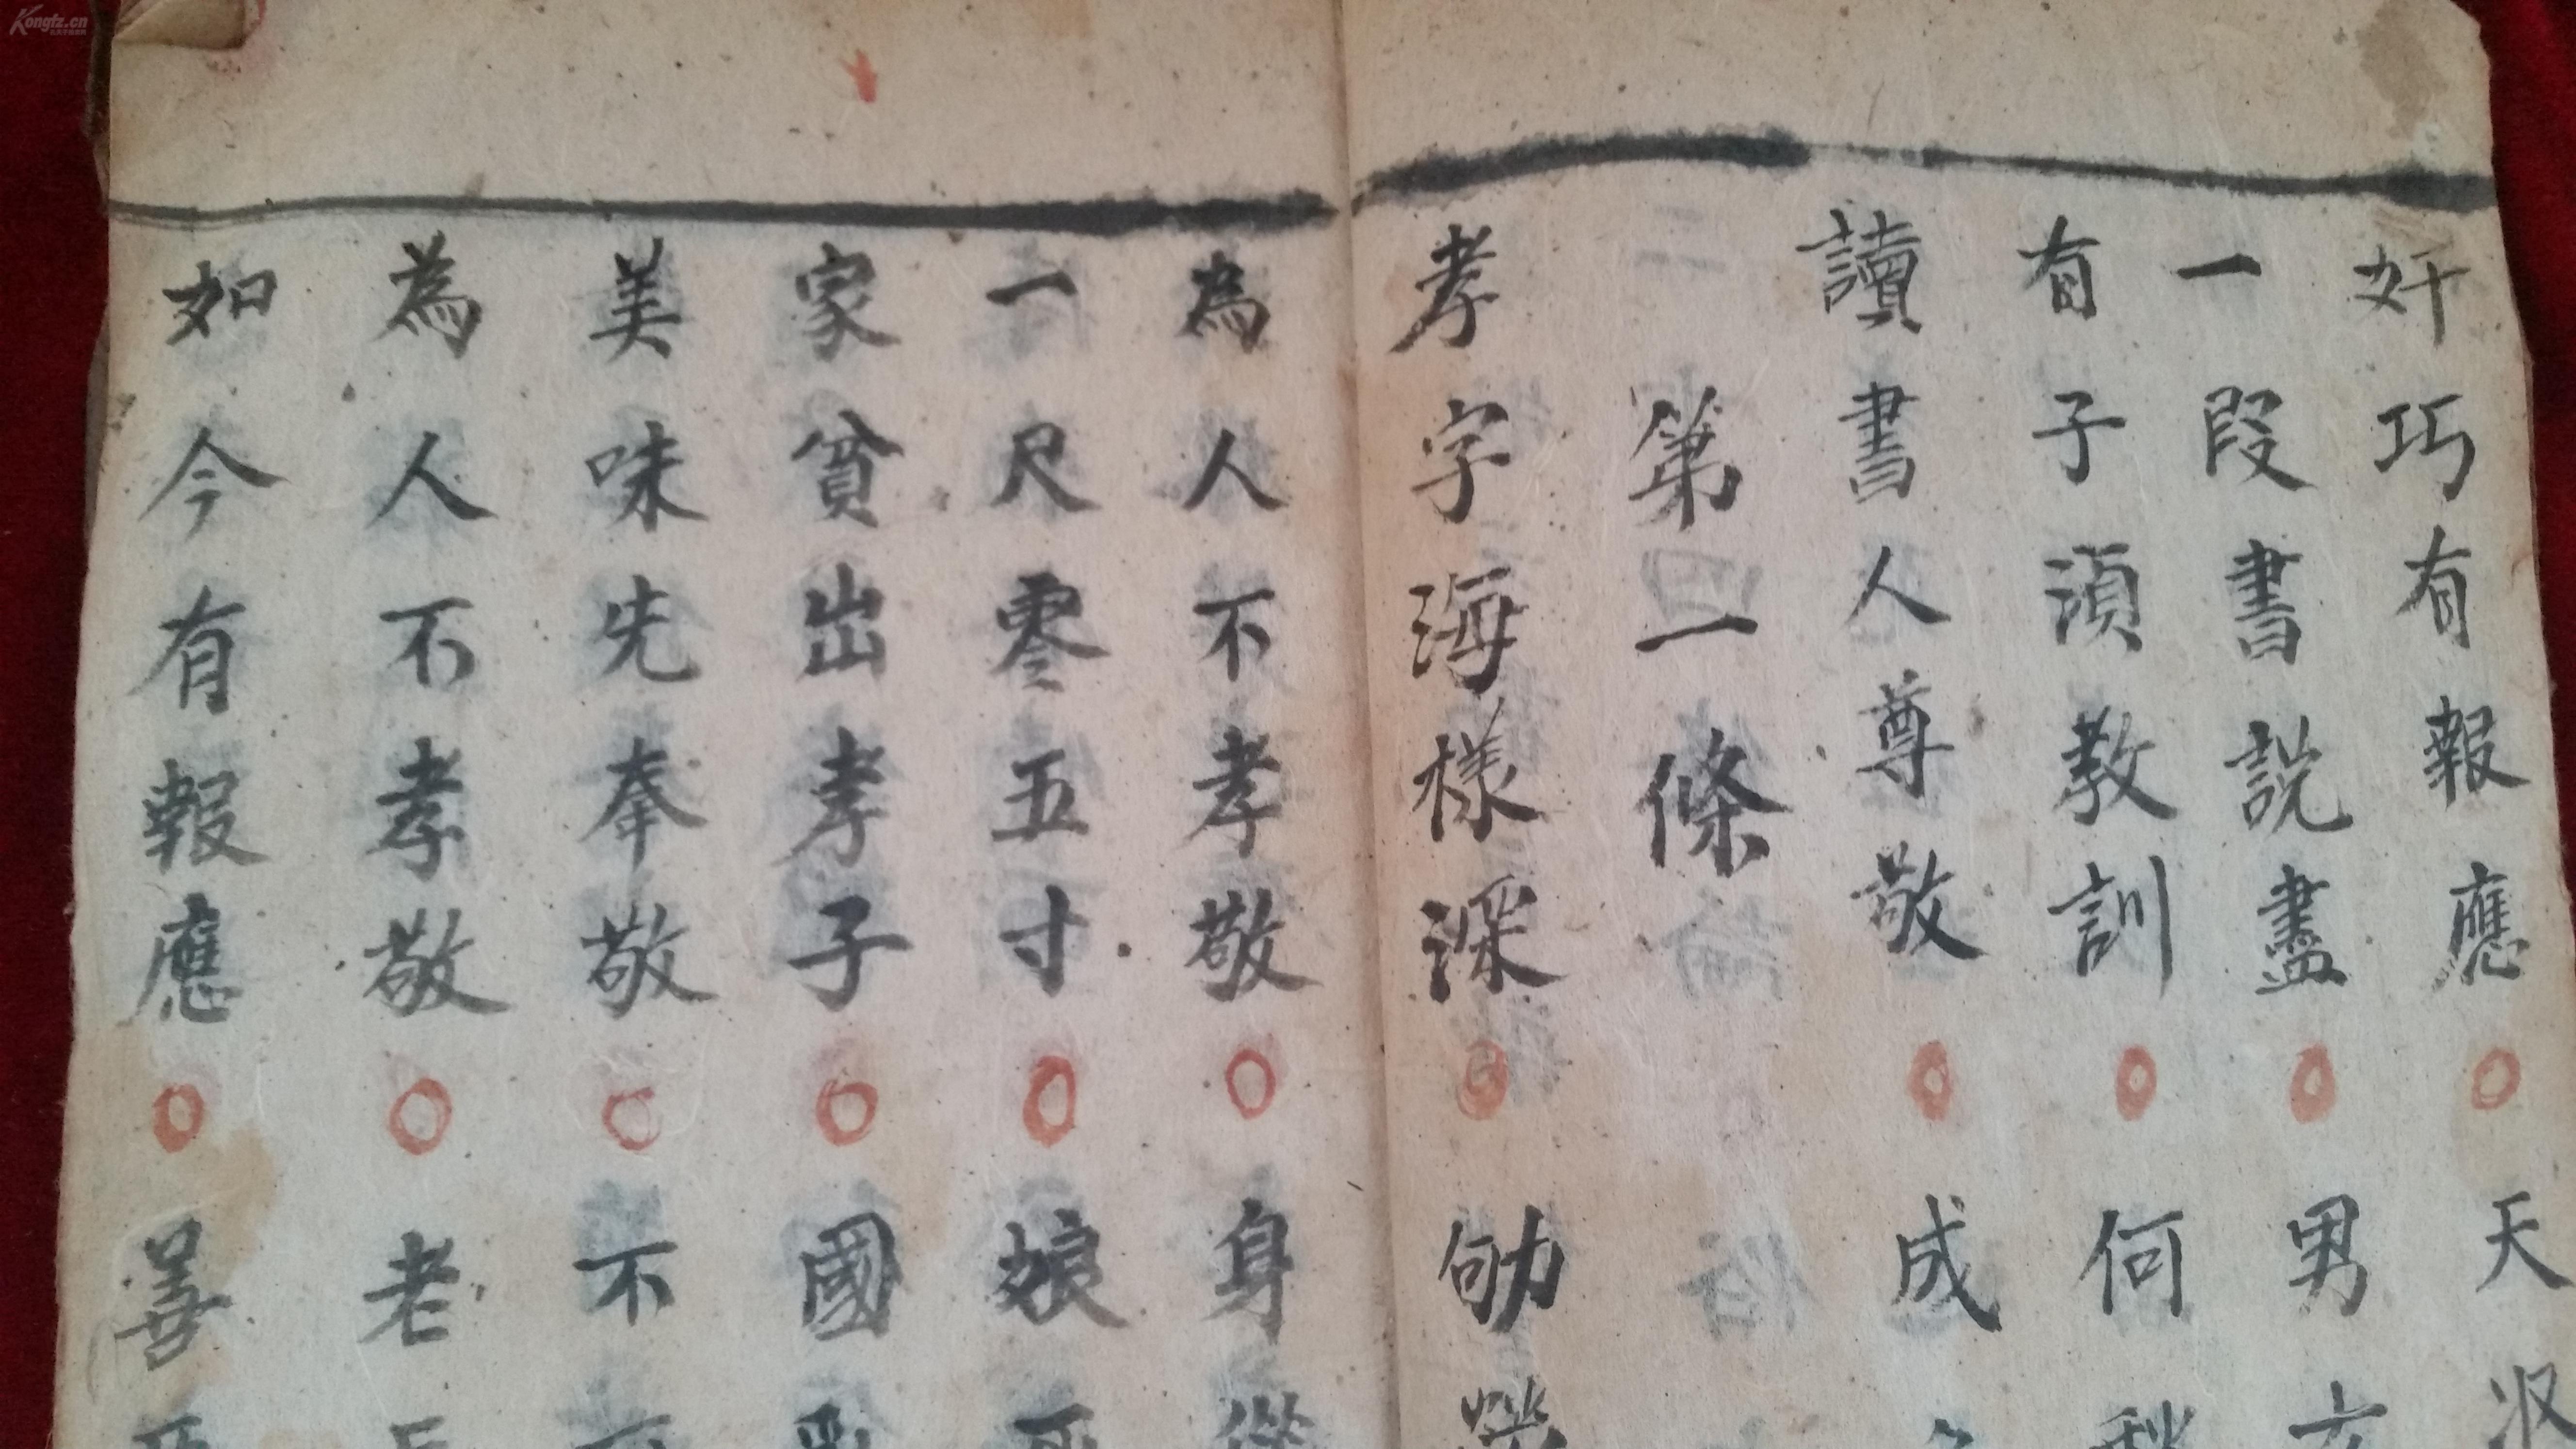 奸巧有報應○天
一段書説盡○男
有子須教訓○何
讀書人尊敬○成
第一條
孝字海樣深○劬勞
為人不孝敬○身從
一尺零五寸○娘
家貧出孝子○國亂
美味先奉敬○不可
為人不孝敬○老
如今有報應○善
Kongfz.cn